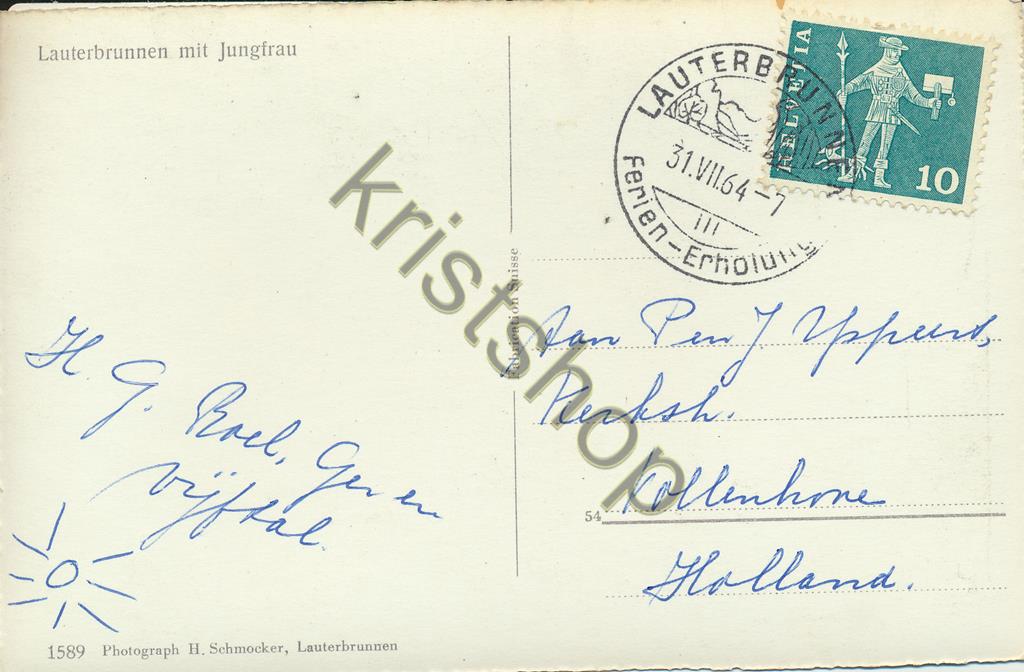 Lauterbrunnen mit Jungfrau
LAUTERBRUNNEN
31.VII.64-7
Ferien-Erholung
HELVETIA
10
kristshop
Fabrication Suisse
Aan Pen J
Kerkstr.
Vollenhove
54
Holland.
H. G. Roel, Ger en
vijftal.
1589 Photograph H. Schmocker, Lauterbrunnen